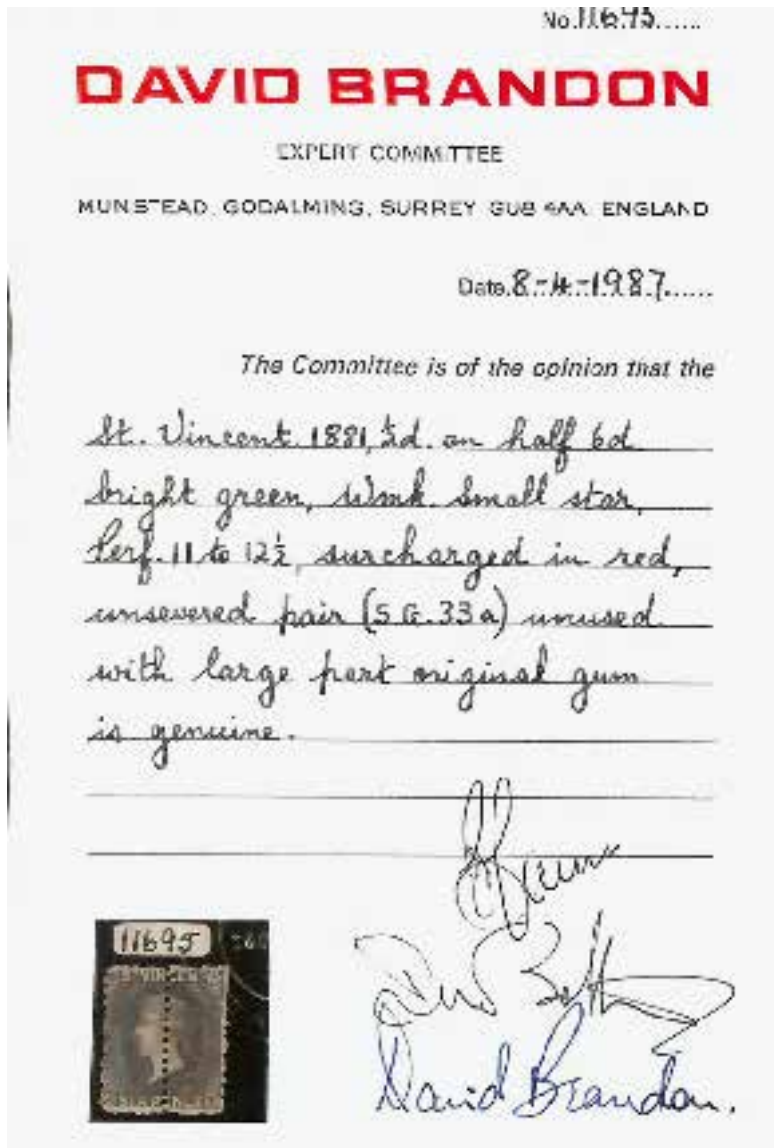 No. 11695
DAVID BRANDON
EXPERT COMMITTEE
MUNSTEAD, GODALMING, SURREY GU8 4AA ENGLAND
Date. 8-4-1987
The Committee is of the opinion that the
St. Vincent 1881, ½d. on half 6d.
bright green, Wmk Small star,
Perf. 11 to 12½, surcharged in red,
unsevered pair (S.G. 33a) unused
with large part original gum
is genuine.
11695
David Brandon.